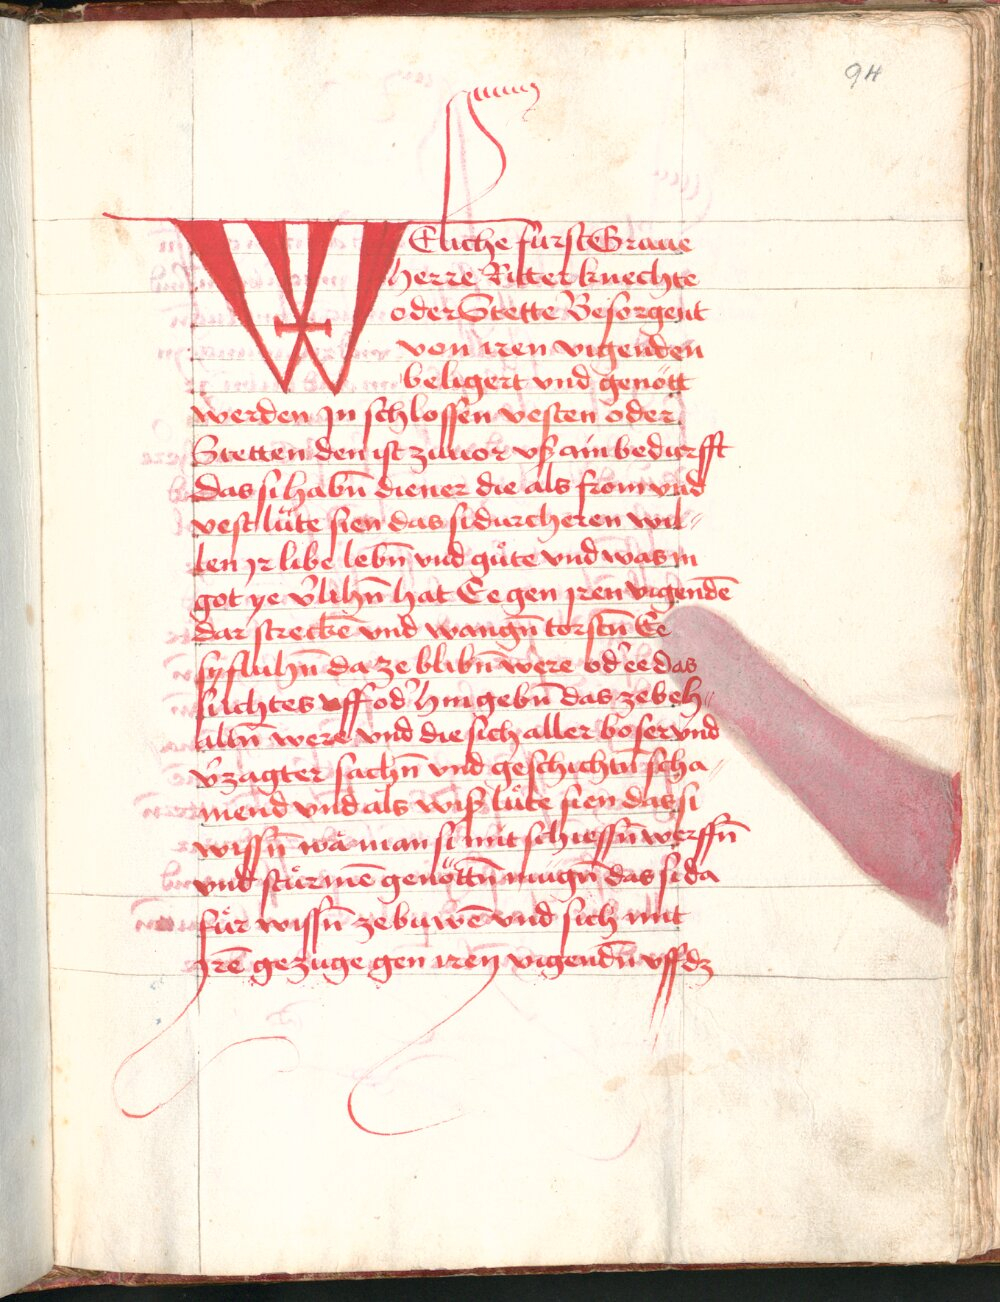 94
WEliche fürst Graue
herre Ritter knechte
oder Stette Besorgent
von iren vigenden
beligert vnd genött
werden Jn schlossen vesten oder
Stetten den ist zuuor vß ain bedurfft
Das si habn̄ diener die als from vnd
vest lüte sien das si durch eren wil-
len Jr libe lebn̄ vnd gůte vnd was in
got ye v̓lihn̄ hat Ee gen Jren vigendē
dar streckē vnd wangn̄ torstn̄ Ee
sy fluhn̄ da ze blibn̄ were od̓ ee das
slichtes vff od̓ hin gebn̄ das ze beh-
altn̄ were vnd die sich aller boser vnd
v̓zagter sachn̄ vnd geschichtn̄ scha-
mend vnd als wiß lüte sien das si
wissn̄ wa man si mit schiessn̄ werffn̄
vnd stürmē genöttn̄ mugn̄ das si da
für wissn̄ ze buwē vnd sich mit
Jrē gezuge gen iren vigendn̄ vff dz